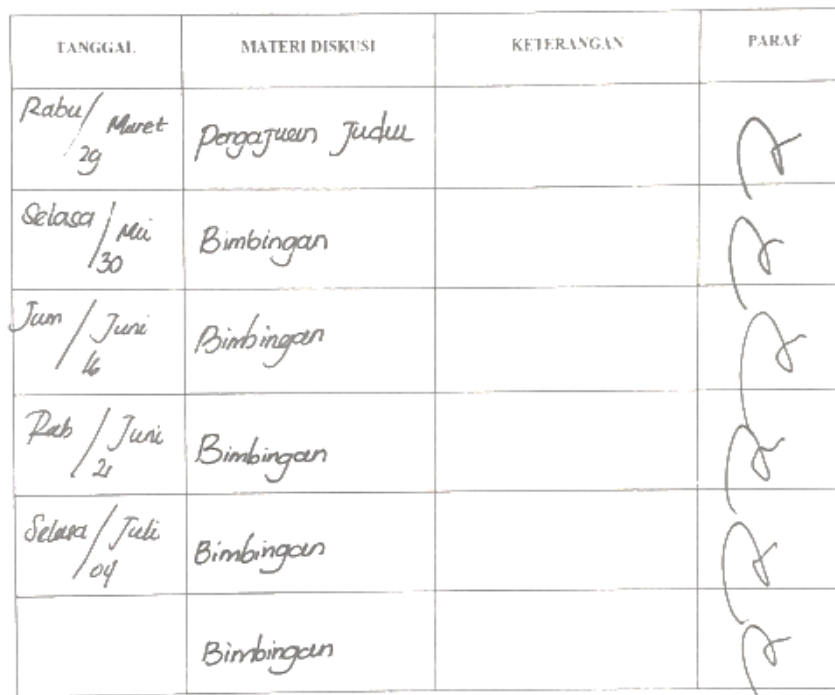 TANGGAL MATERI DISKUSI KETERANGAN PARAF
Rabu/ Maret 29 Pengajuan Judul
Selasa/ Mei 30 Bimbingan
Jum / Juni 16 Bimbingan
Rab / Juni 21 Bimbingan
Selasa/ Juli 04 Bimbingan
Bimbingan